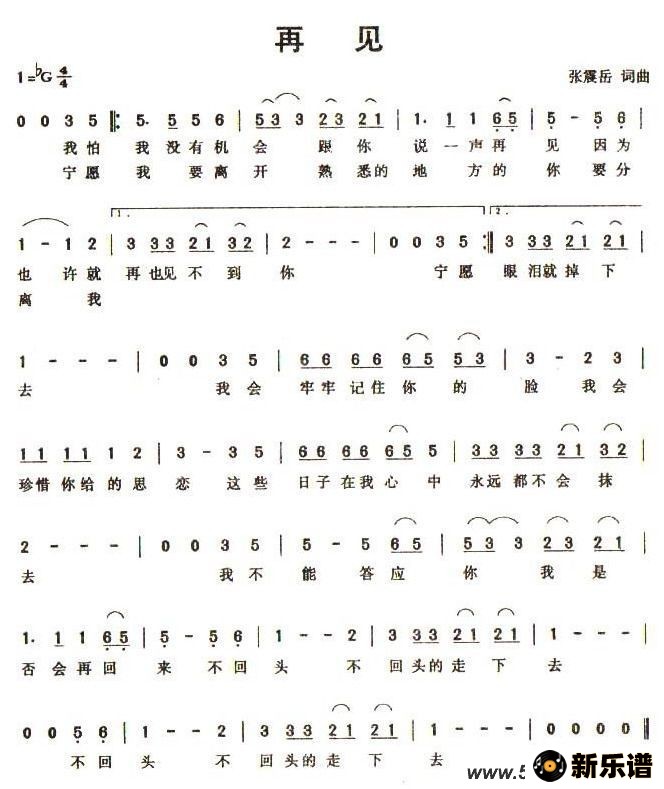 再 见
1=♭G 4/4 张震岳 词曲
0 0 3 5 |: 5. 5 5 5 6 | 5 3 3 2 3 2 1 | 1. 1 1 6 5 | 5 - 5 6 |
我怕 我 没有机 会 跟你 说 一声再 见 因为
宁愿 我 要离 开 熟悉的 地 方的 你 要分
1. 2.
1 - 1 2 | 3 3 3 2 1 3 2 | 2 - - - | 0 0 3 5 :| 3 3 3 2 1 2 1 |
也 许就 再也见不到 你 宁愿 眼泪就掉下
离 我
1 - - - | 0 0 3 5 | 6 6 6 6 6 5 5 3 | 3 - 2 3 |
去 我会 牢牢记住你 的 脸 我会
1 1 1 1 1 2 | 3 - 3 5 | 6 6 6 6 6 5 5 | 3 3 3 3 2 1 3 2 |
珍惜你给的思 恋 这些 日子在我心 中 永远都不会抹
2 - - - | 0 0 3 5 | 5 - 5 6 5 | 5 3 3 2 3 2 1 |
去 我不 能 答应 你 我 是
1. 1 1 6 5 | 5 - 5 6 | 1 - - 2 | 3 3 3 2 1 2 1 | 1 - - - |
否 会再回 来 不回 头 不 回头的走下 去
0 0 5 6 | 1 - - 2 | 3 3 3 2 1 2 1 | 1 - - - | 0 0 0 0
不回 头 不 回头的走 下 去
www.5
新乐谱